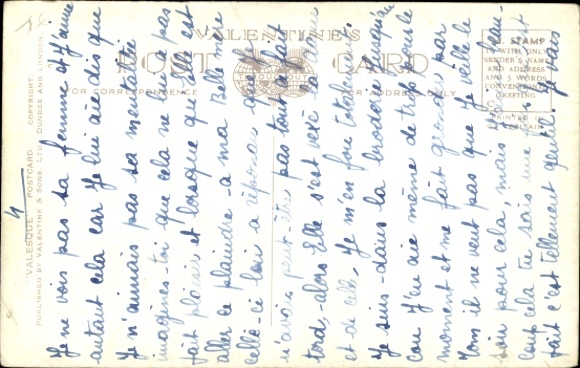 VALENTINE'S
POST CARD
FOR CORRESPONDENCE
FOR ADDRESS ONLY
STAMP
WITH ONLY
SENDER'S NAME
AND ADDRESS
AND 5 WORDS
CONVENTIONAL
GREETING
PRINTED IN
"VALESQUE" POSTCARD. COPYRIGHT.
PUBLISHED BY VALENTINE & SONS, LTD. DUNDEE AND LONDON.
4
Je ne vois pas sa femme et j'aime
autant cela car je lui aie dis que
je n'aimais pas sa mentalité
imagines-toi que cela ne lui a pas
fait plaisir et lorsque qu'elle est
aller ce plaindre - a ma Belle mère
celle-ci lui a répondu que je
n'avais peut-être pas tout a fait
tord, - alors Elle s'est vexé la dame
et de cela, je m'en fou totalement.
Je suis - dans la broderie jusqu'au
cou j'en aie même de trop pour le
moment et me fait gronder par
Tom il ne veut pas que je veille le
soir pour cela, mais
coup cela tu sais une
fait c'est tellement gentil. Je vais